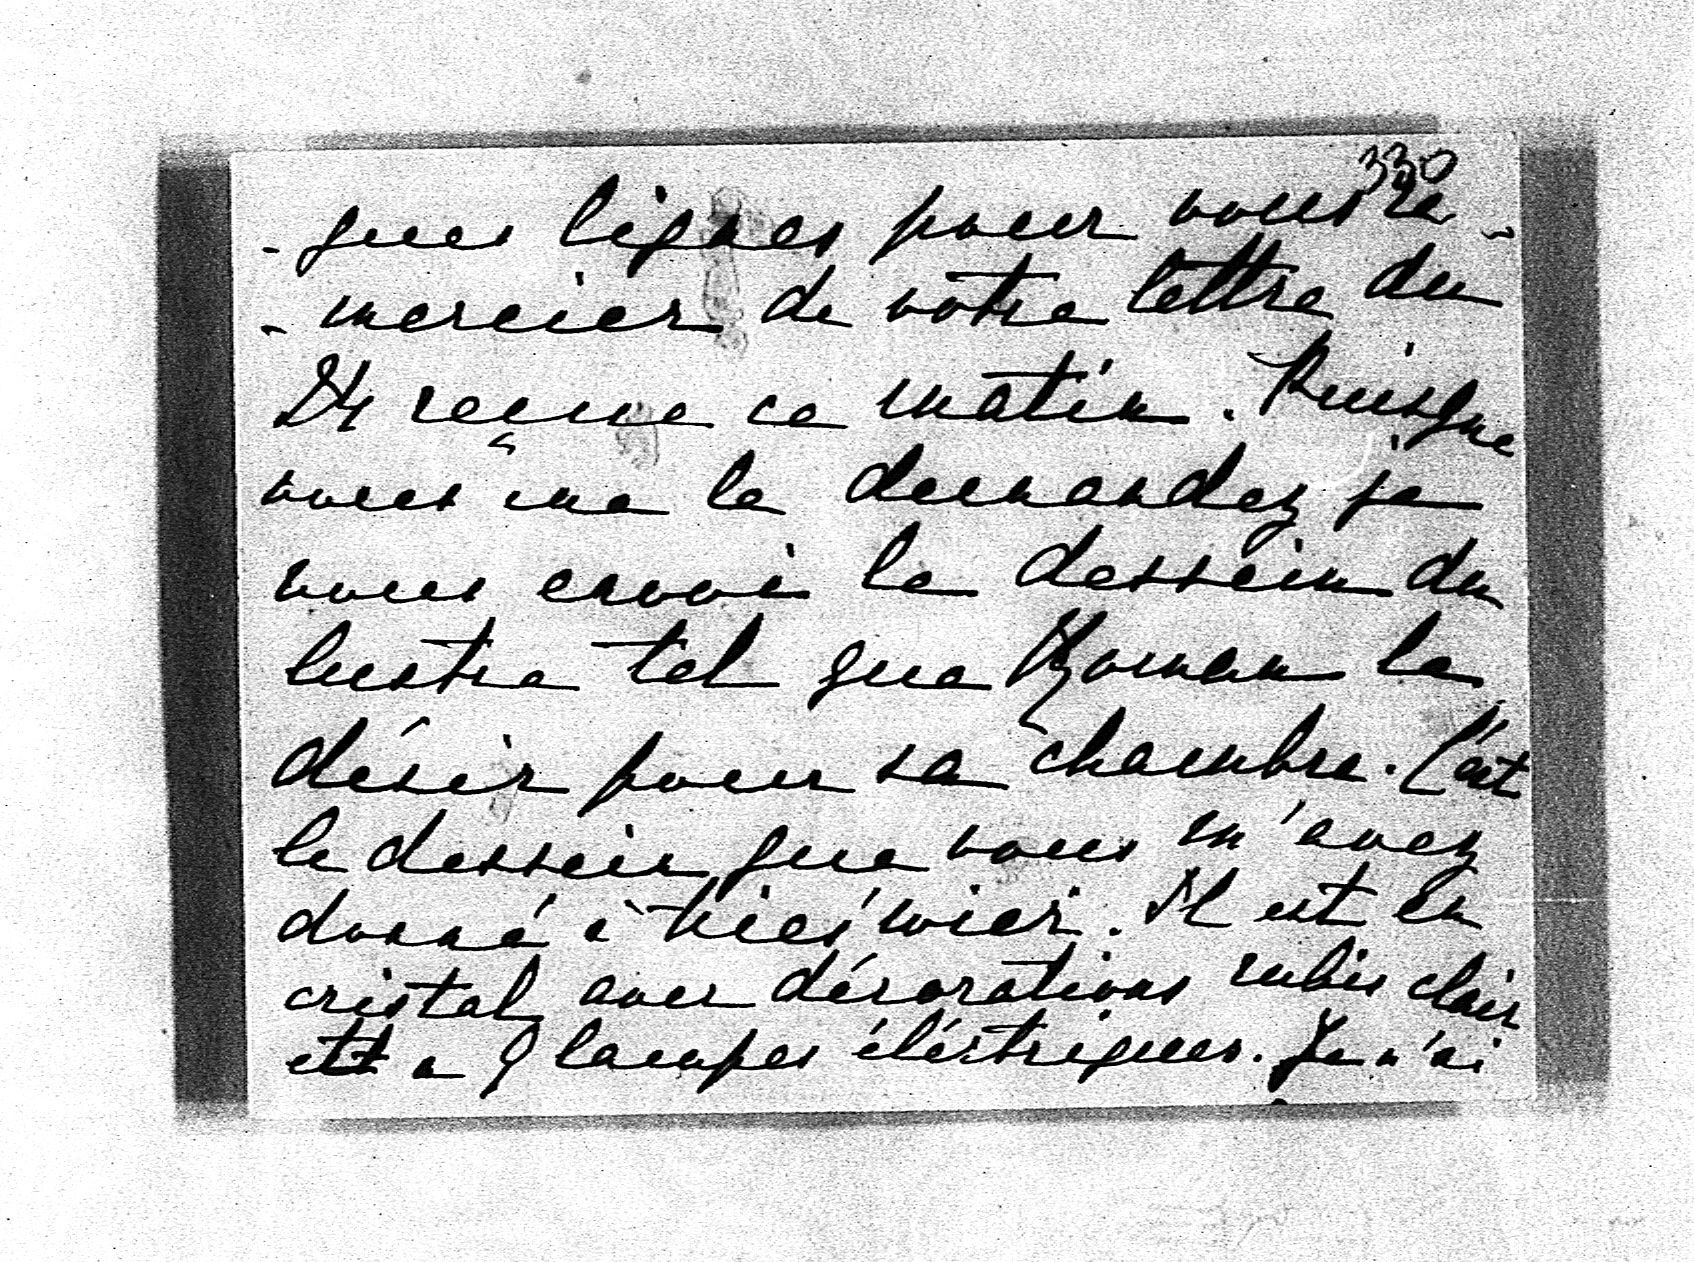 330
-ques lignes pour vous re-
-mercier de votre lettre du
24 reçue ce matin. Puisque
vous me le demandez je
vous envoi le dessein du
lustre tel que Roman le
désir pour sa chambre. C'est
le dessein que vous m'avez
donné à Nieświez. Il est en
cristal avec décorations rubis clair
et a 9 lampes éléctriques. Je n'ai